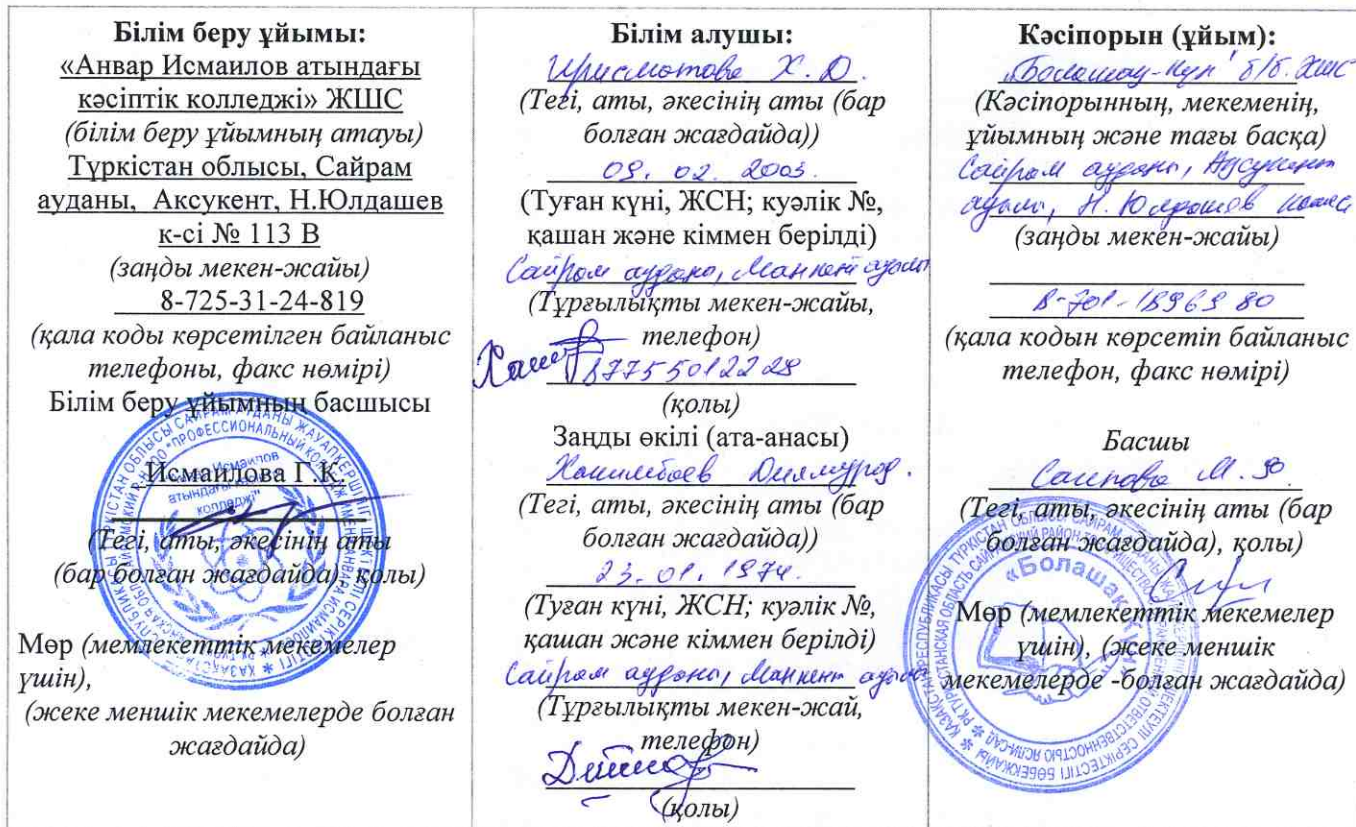 Білім беру ұйымы:
«Анвар Исмаилов атындағы
кәсіптік колледжі» ЖШС
(білім беру ұйымның атауы)
Түркістан облысы, Сайрам
ауданы, Аксукент, Н.Юлдашев
к-сі № 113 В
(заңды мекен-жайы)
8-725-31-24-819
(қала коды көрсетілген байланыс
телефоны, факс нөмірі)
Білім беру ұйымның басшысы
Исмаилова Г.К.
(Тегі, аты, әкесінің аты
(бар болған жағдайда), қолы)
Мөр (мемлекеттік мекемелер
үшін),
(жеке меншік мекемелерде болған
жағдайда)
Білім алушы:
Ирисматова Х. Д.
(Тегі, аты, әкесінің аты (бар
болған жағдайда))
09. 02. 2003.
(Туған күні, ЖСН; куәлік №,
қашан және кіммен берілді)
Сайрам ауданы, Манкент ауылы
(Тұрғылықты мекен-жайы,
телефон)
87755012228
(қолы)
Заңды өкілі (ата-анасы)
Хакимбаев Дилмурод.
(Тегі, аты, әкесінің аты (бар
болған жағдайда))
23. 01. 1974.
(Туған күні, ЖСН; куәлік №,
қашан және кіммен берілді)
Сайрам ауданы, Манкент ауылы
(Тұрғылықты мекен-жай,
телефон)
(қолы)
Кәсіпорын (ұйым):
"Болашақ-Күн" б/б. ЖШС
(Кәсіпорынның, мекеменің,
ұйымның және тағы басқа)
Сайрам ауданы, Ақсукент
ауылы, Н. Юлдашев көшесі
(заңды мекен-жайы)
8-701-1896980
(қала кодын көрсетіп байланыс
телефон, факс нөмірі)
Басшы
Саипова М.
(Тегі, аты, әкесінің аты (бар
болған жағдайда), қолы)
«Болашақ
Мөр (мемлекеттік мекемелер
үшін), (жеке меншік
мекемелерде -болған жағдайда)